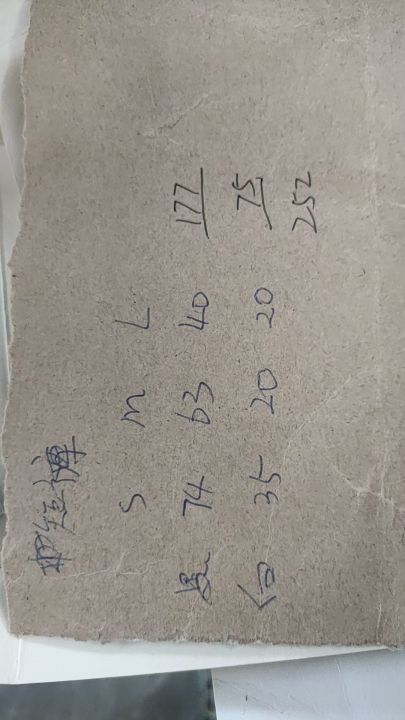 短褲
S m L
黑 74 63 40 177
白 35 20 20 75
252